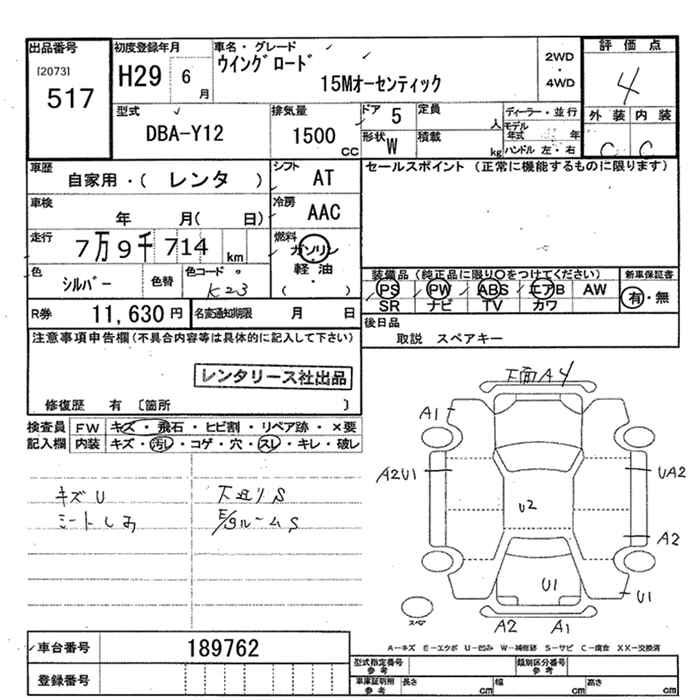 出品番号
[2073]
517
初度登録年月
H29 6月
車名・グレード
ウイングロード
15Mオーセンティック
2WD
・
4WD
評価点
4
外装 内装
C C
型式
DBA-Y12
排気量
1500 CC
ドア 5
定員 人
形状 W
積載 kg
ディーラー・並行
モデル年式 年
ハンドル 左・右
車歴
自家用・( レンタ )
シフト
AT
セールスポイント (正常に機能するものに限ります)
車検
年 月( 日)
冷房
AAC
走行
7万9千714 km
燃料
ガソリン
軽油
( )
色
シルバー
色替
色コード
K23
装備品 (純正品に限り〇をつけてください)
PS PW ABS エアB AW
SR ナビ TV カワ
新車保証書
有・無
R券 11,630 円
名変通知期限 月 日
後日品
取説 スペアキー
注意事項申告欄(不具合内容等は具体的に記入して下さい)
レンタリース社出品
修復歴 有 〔箇所 〕
検査員
記入欄
FW キズ・飛石・ヒビ割・リペア跡・×要
内装 キズ・汚れ・コゲ・穴・スレ・キレ・破レ
キズU
シートしみ
下廻りS
E/gルームS
下面A4
A1
A2U1
UA2
U2
A2
U1
U1
A2 A1
スペア
A-キズ E-エクボ U-凹み W-補修跡 S-サビ C-腐食 XX-交換済
車台番号
189762
登録番号
型式指定番号
参考
類別区分番号
参考
車庫証明用
参考
長さ cm
幅 cm
高さ cm